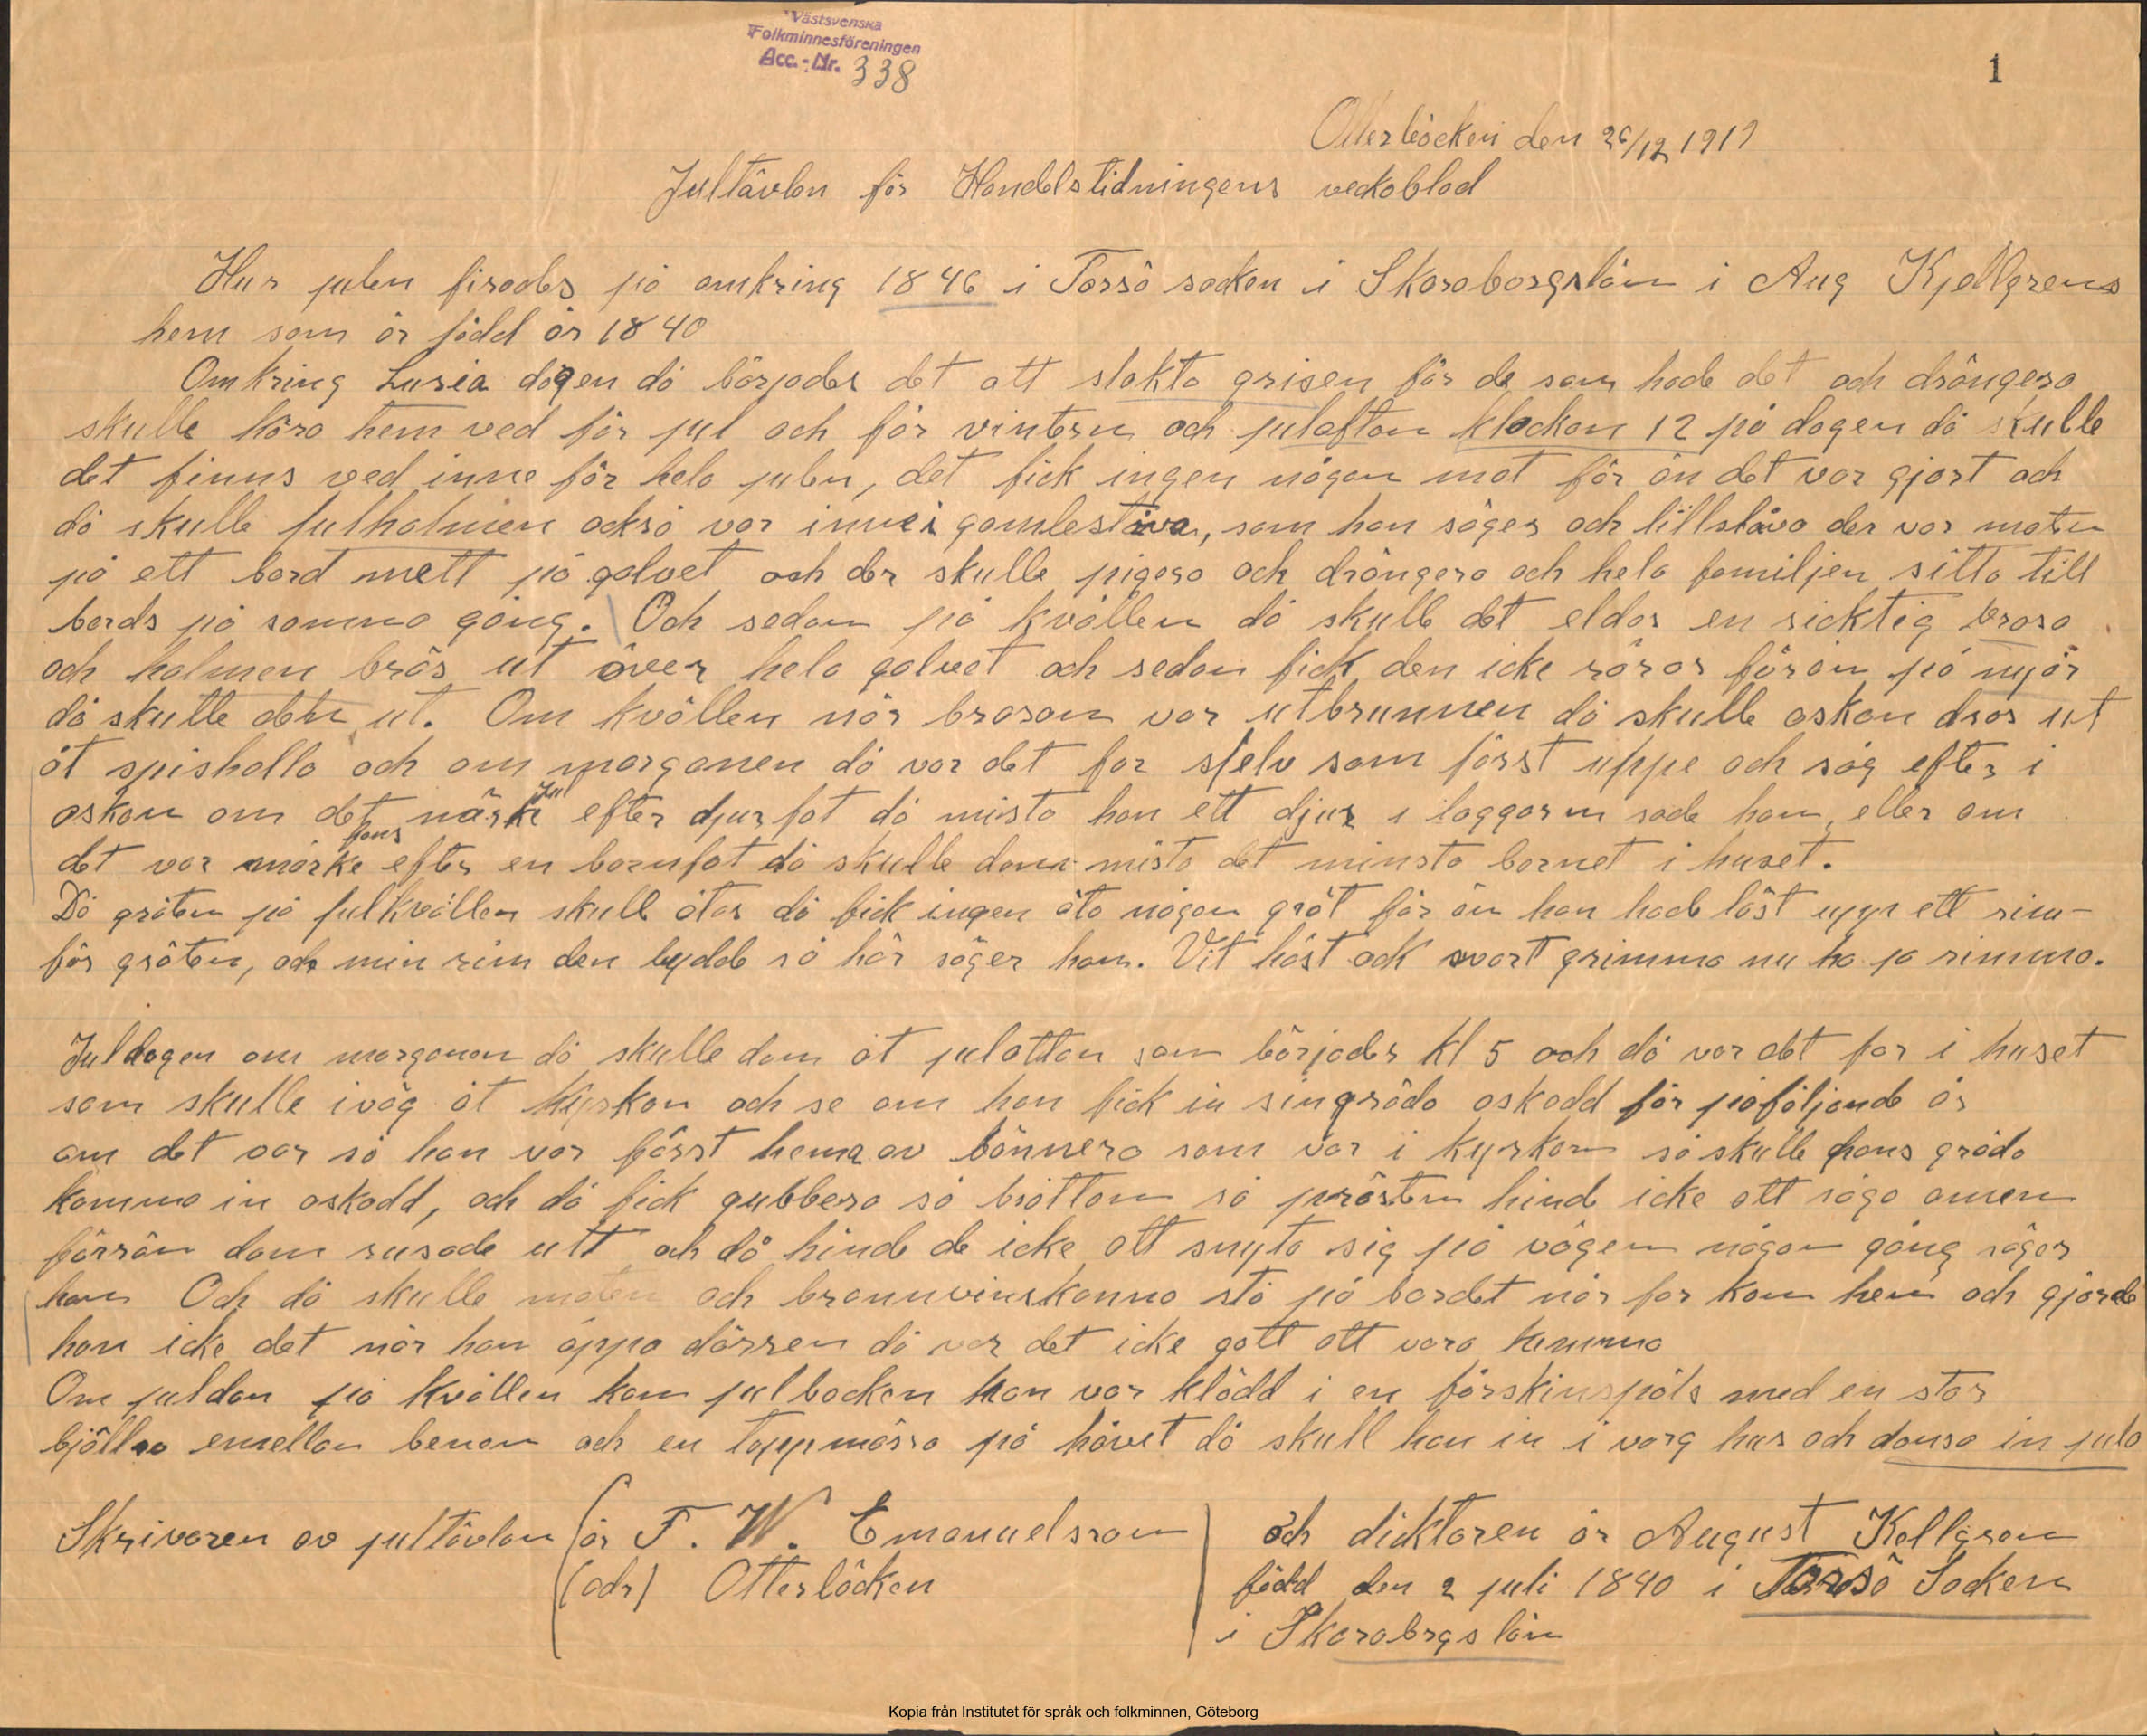 Västsvenska
Folkminnesföreningen
Acc.-Nr. 338
1
Otterböcken den 26/12 1919
Jultävlan för Handelstidningens veckoblad
Hur julen firades på omkring 1846 i Torsö socken i Skaraborgslän i Aug Kjellgrens
hem som är född år 1840
Omkring Lusia dagen då börjades det att slakta grisen för de som hade det och drängera
skulle köra hem ved för jul och för vintern och julaftan klockan 12 på dagen då skulle
det finns ved inne för hela julen, det fick ingen någon mat för än det var gjort och
då skulle julhalmen också var inne i gamlestäva, som han säger och lillstäva der var maten
på ett bord mett på golvet och der skulle pigera och drängera och hela familjen sitta till
bords på samma gång. Och sedan på kvällen då skulle det eldas en ricktig brasa
och halmen bräs ut över hela golvet och sedan fick den icke röras förän på nyår
då skulle den ut. Om kvällen när brasan var utbrunnen då skulle askan dras ut
åt spishalla och om morganen då var det far sjelv som först uppe och såg efter i
askan om det fans märke efter djurfot då mista han ett djur i laggarn sade han, eller om
det var märke efter en barnfot då skulle dom mista det minsta barnet i huset.
Då gröten på julkvällen skulle ätas då fick ingen äta någon gröt för än han hade läst upp ett rim
för gröten, och min rim den lydde så här säger han. Vit häst ock svart grimma nu ha ja rimma.
Juldagen om morganan då skulle dom åt julattan som börjades kl 5 och då var det far i huset
som skulle iväg åt kyrkan och se om han fick in singröda oskadd för påföljande år
om det var så han var först hema av bönnera som var i kyrkan så skulle hans gröda
komma in oskadd, och då fick gubbera så bråttom så prästen hinde icke att säga amen
förrän dom rusade utt och då hinde de icke att snyta sig på vägen någon gång säger
han Och då skulle maten och brannvinskanna stå på bordet när far kom hem och gjorde
han icke det när han öppa dörren då var det icke gott att vara hemma
Om juldan på kvällen kom julbocken han var klädd i en fårskinspäls med en stor
bjällra emellan benen och en toppmössa på hövet då skull han in i varg hus och dansa in jula
Skrivaren av jultävlan är F. W. Emanuelsson
(adr) Otterböcken
och dicktaren är August Kellgren
född den 2 juli 1840 i Torsö Socken
i Skarabrgs län
Kopia från Institutet för språk och folkminnen, Göteborg